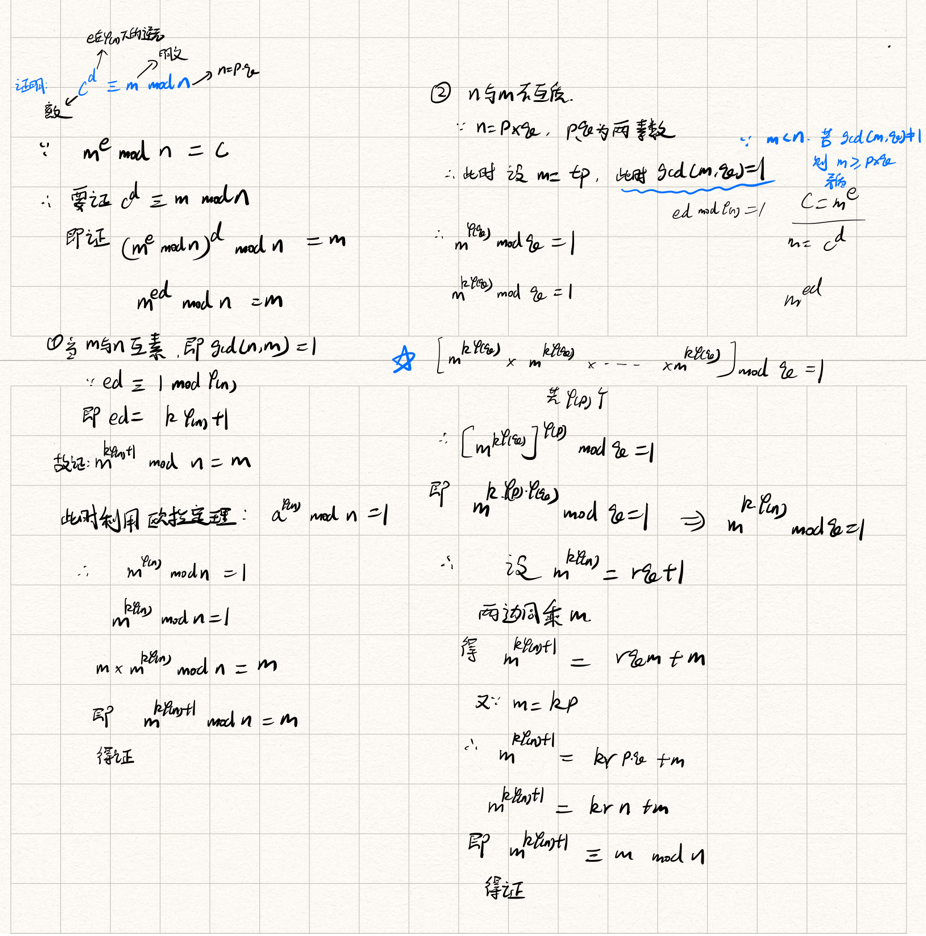 e在φ(n)下的逆元
明文
证明: c^d ≡ m mod n → n=p·q
密文
∵ m^e mod n = C
∴ 要证 c^d ≡ m mod n
即证 (m^e mod n)^d mod n = m
m^ed mod n = m
① 当m与n互素,即 gcd(n,m)=1
∵ ed ≡ 1 mod φ(n)
即 ed = kφ(n)+1
故证: m^kφ(n)+1 mod n = m
此时利用欧拉定理: a^φ(n) mod n = 1
∴ m^φ(n) mod n = 1
m^kφ(n) mod n = 1
m × m^kφ(n) mod n = m
即 m^kφ(n)+1 mod n = m
得证
② n与m不互质.
∵ n=p×q, p,q为两素数
∴ 此时 设 m=tp, 此时 gcd(m,q)=1
∵ m<n. 若 gcd(m,q)≠1
则 m≥p×q
矛盾
ed mod φ(n)=1
C=m^e
m=c^d
m^ed
∴ m^φ(q) mod q = 1
m^kφ(q) mod q = 1
☆ [m^kφ(q) × m^kφ(q) × ···· × m^kφ(q)] mod q = 1
共φ(p)个
∴ [m^kφ(q)]^φ(p) mod q = 1
即 m^k·φ(p)·φ(q) mod q = 1 ⇒ m^kφ(n) mod q = 1
∴ 设 m^kφ(n) = rq+1
两边同乘 m
得 m^kφ(n)+1 = rqm+m
又∵ m=kp
∴ m^kφ(n)+1 = kr p·q +m
m^kφ(n)+1 = kr n +m
即 m^kφ(n)+1 ≡ m mod n
得证